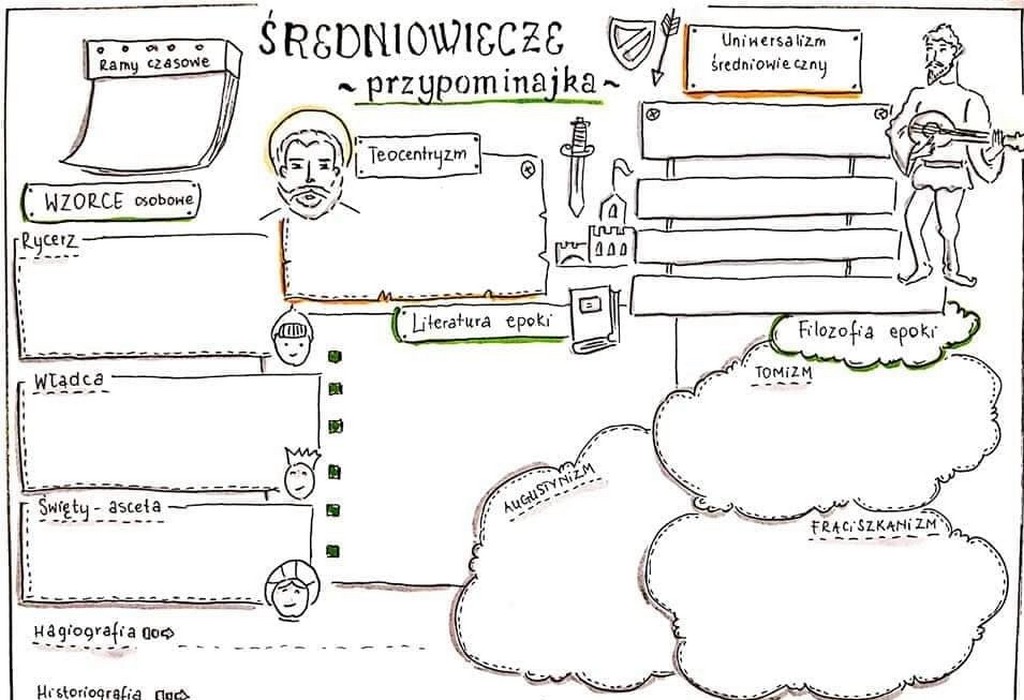 ŚREDNIOWIECZE
~ przypominajka ~
Ramy czasowe
Uniwersalizm
średniowieczny
Teocentryzm
WZORCE osobowe
Rycerz
Literatura epoki
Filozofia epoki
TOMIZM
Władca
AUGUSTYNIZM
Święty - asceta
FRACISZKANIZM
Hagiografia
Historiografia